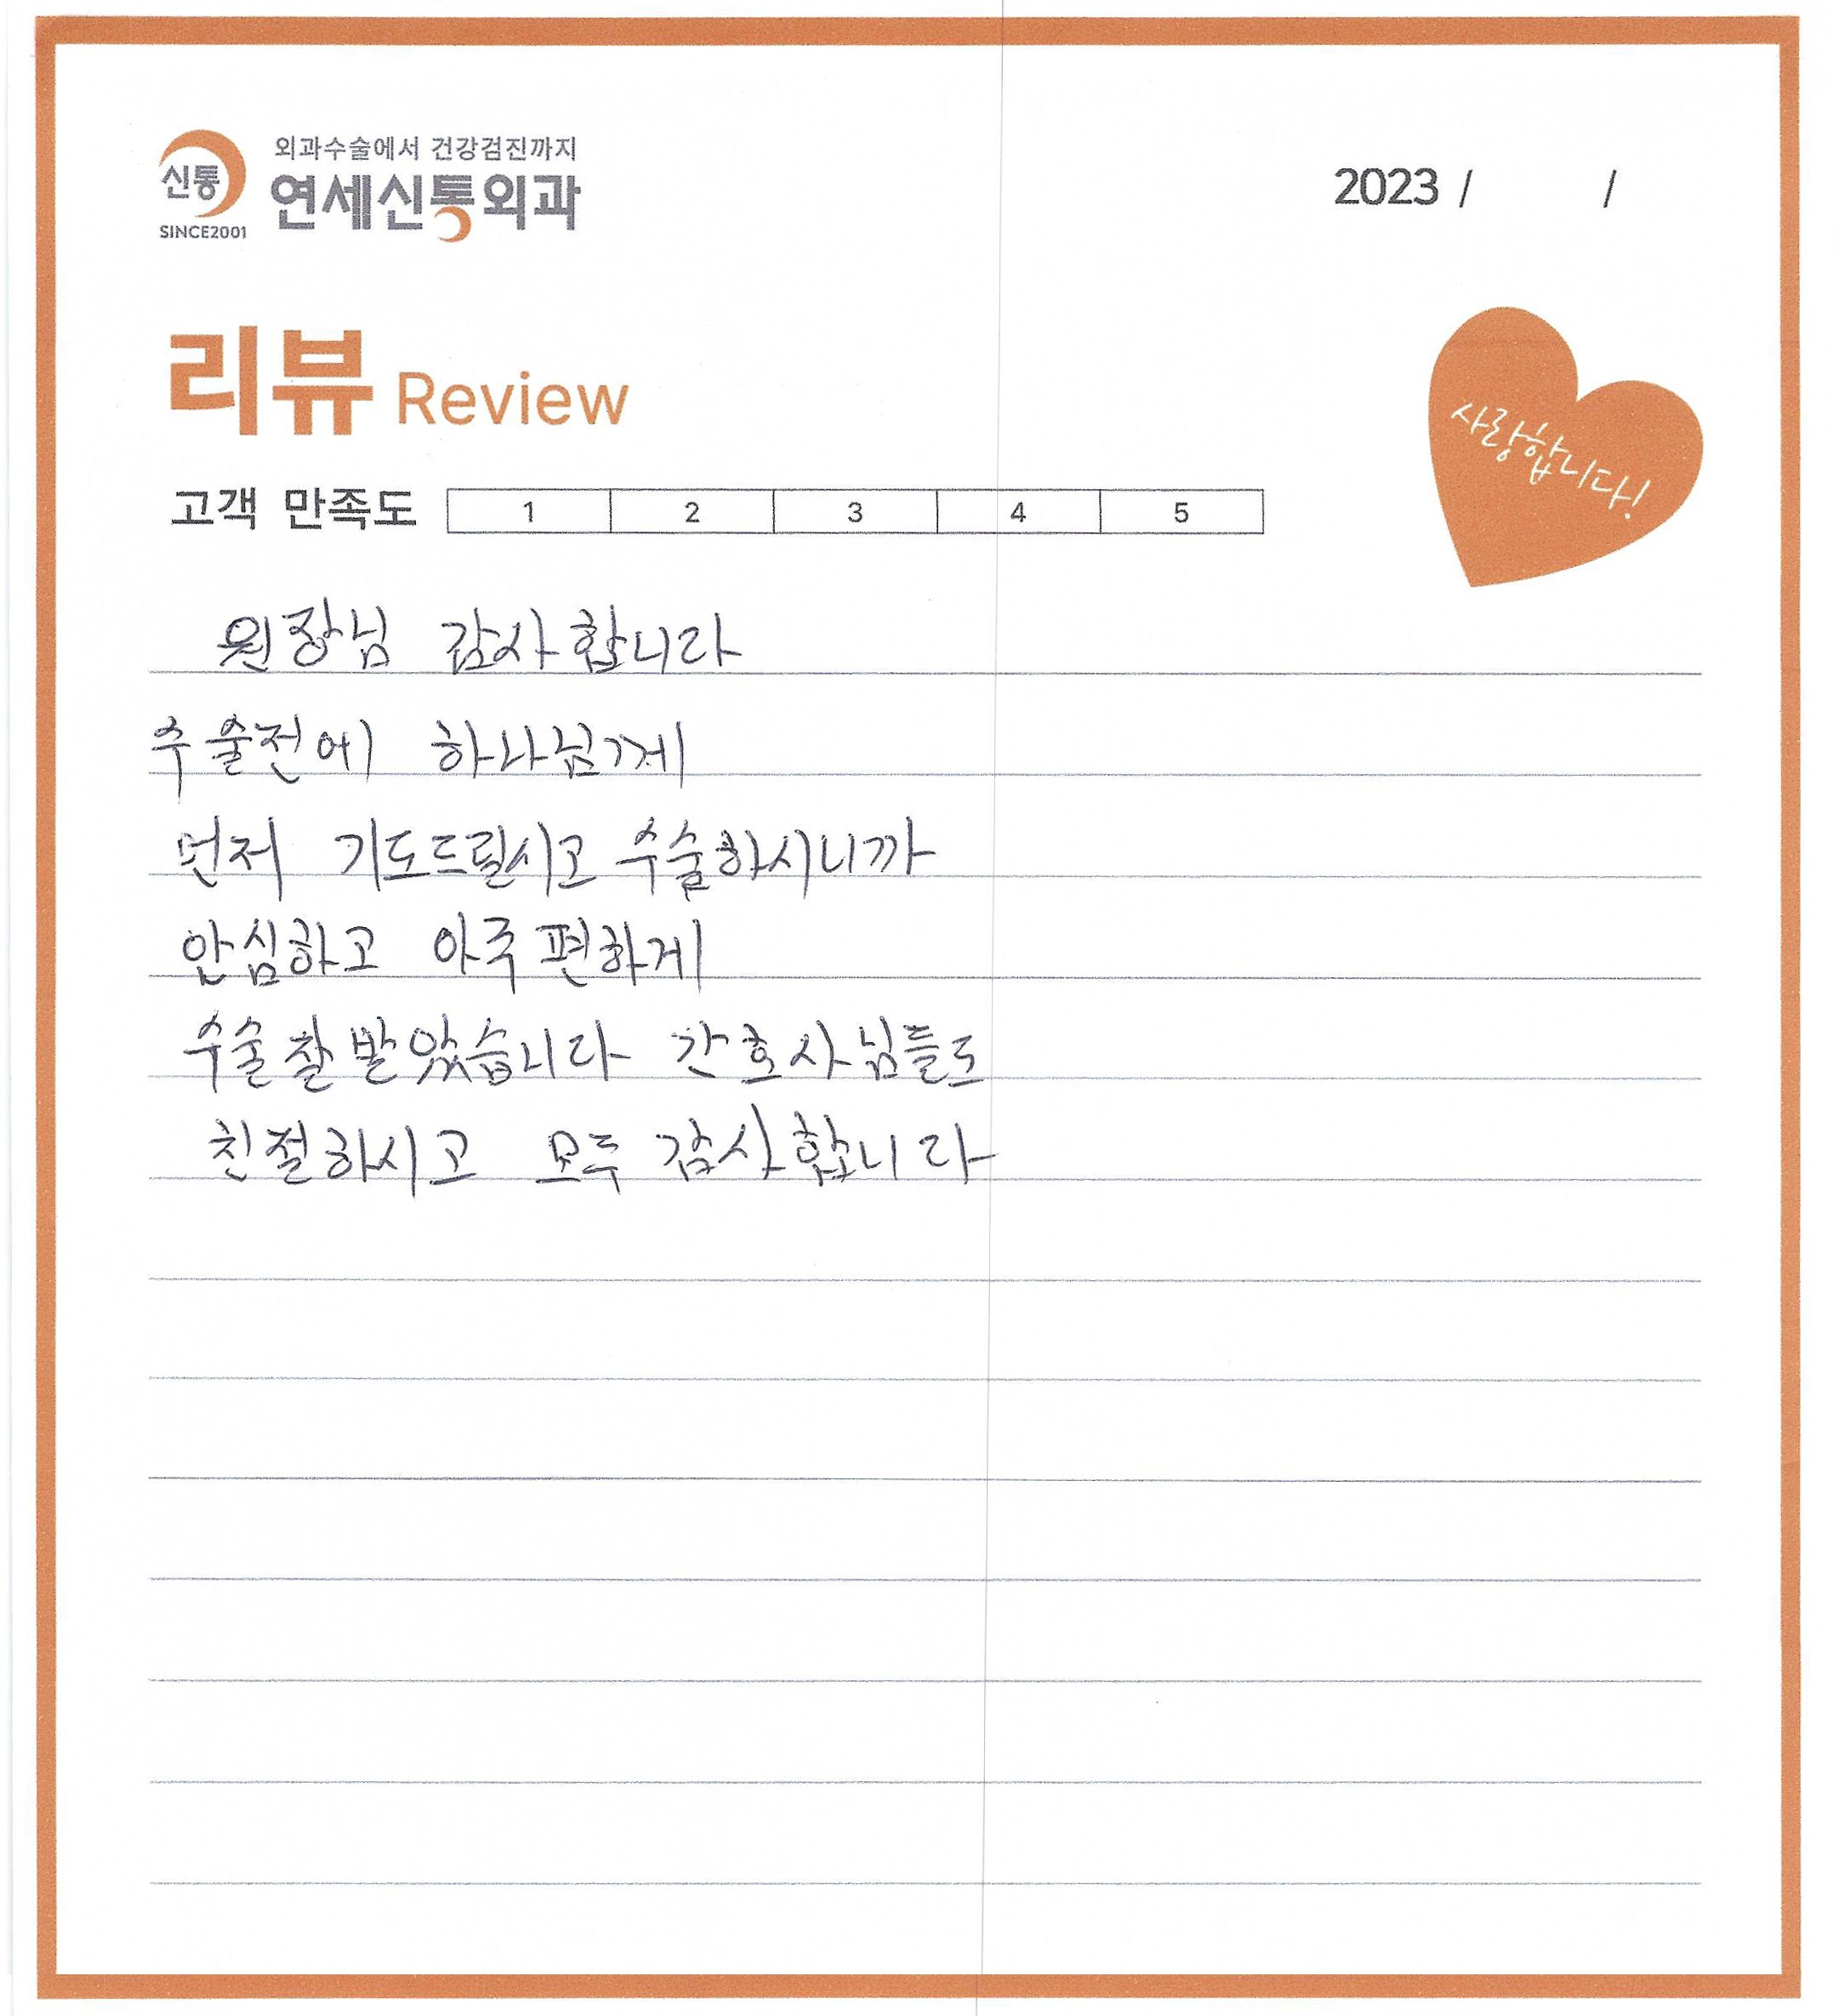 외과수술에서 건강검진까지
신통
연세신통외과
SINCE2001
2023 / /
리뷰 Review
사랑합니다!
고객 만족도 1 2 3 4 5
원장님 감사합니다
수술전에 하나님께
먼저 기도드릴시고 수술하시니까
안심하고 아주 편하게
수술 잘 받았습니다 간호사님들도
친절하시고 모두 감사합니다